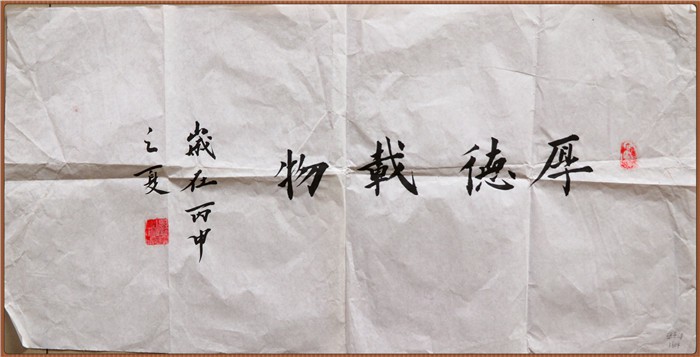 厚德載物
歲在丙申
之夏